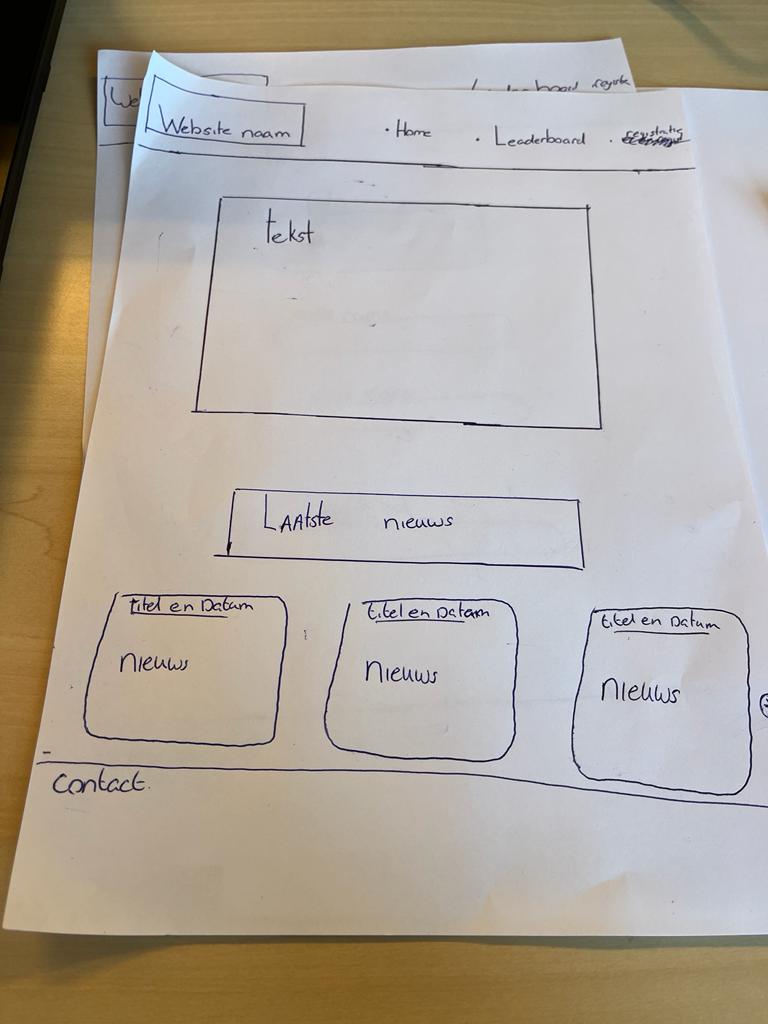 We
Leaderboard registr
Website naam
· Home
· Leaderboard
· registratie
tekst
LAAtste nieuws
titel en Datum
nieuws
titel en Datum
nieuws
titel en Datum
nieuws
contact.